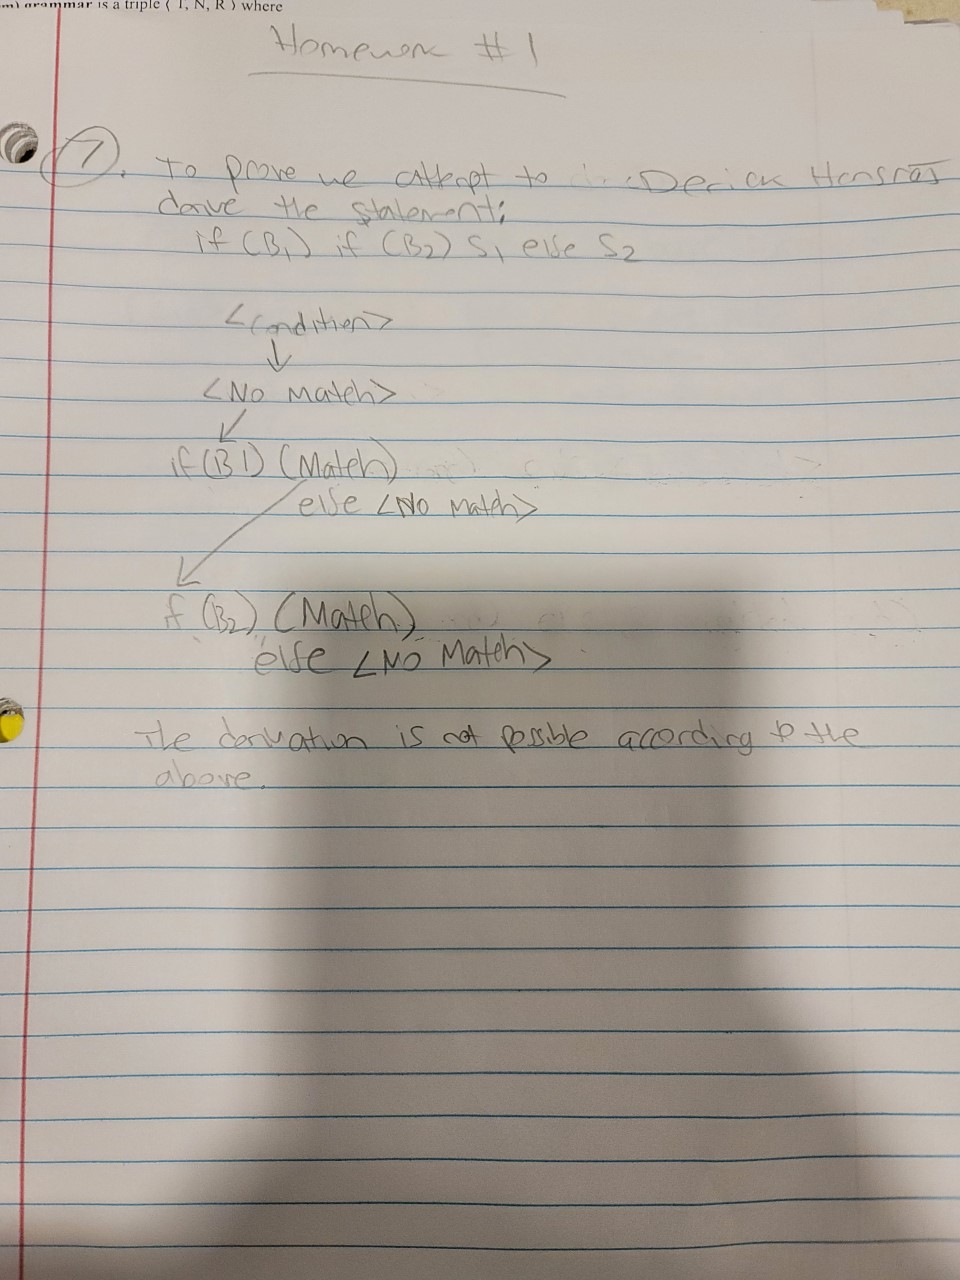 grammar is a triple ( T, N, R ) where
Homework #1
7. To prove we attempt to Derick Hensraj
derive the statement:
if (B1) if (B2) S1 else S2
<Condition>
<No Match>
if (B1) (Match)
else <No Match>
if (B2) (Match)
else <No Match>
The derivation is not possible according to the
above.